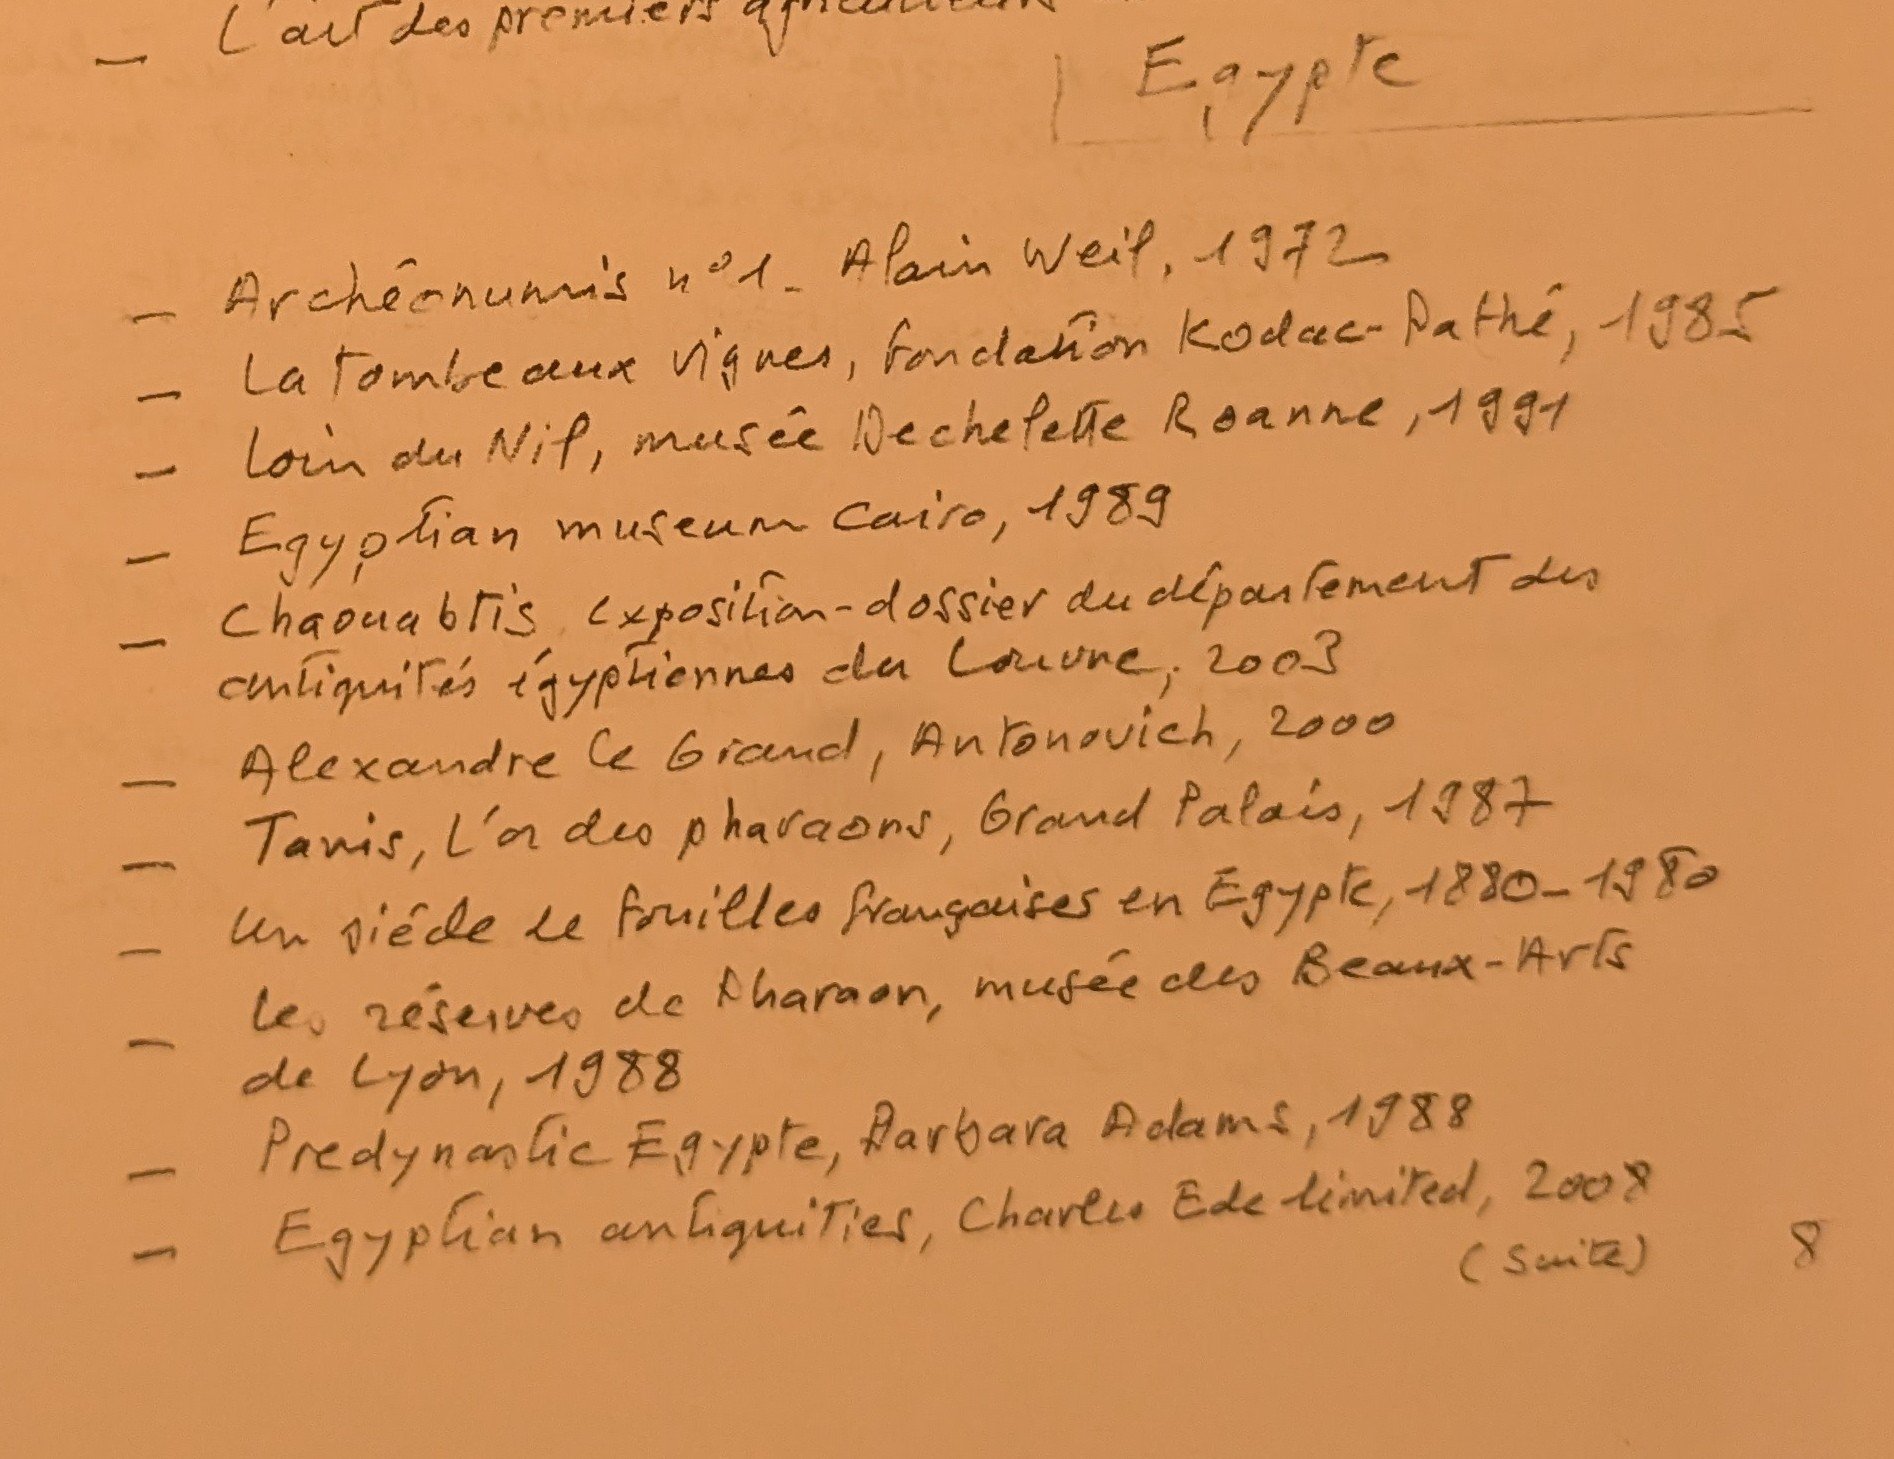 - L'art des premiers agriculteurs
Egypte
- Archéonumis n°1 - Alain Weil, 1972
- La tombe aux vignes, fondation Kodac-Pathé, 1985
- Loin du Nil, musée Dechelette Roanne, 1991
- Egyptian museum Cairo, 1989
- Chaouabtis, exposition-dossier du département des
antiquités égyptiennes du Louvre, 2003
- Alexandre le Grand, Antonovich, 2000
- Tanis, L'or des pharaons, Grand Palais, 1987
- Un siècle de fouilles françaises en Egypte, 1880-1980
- les réserves de Pharaon, musée des Beaux-Arts
de Lyon, 1988
- Predynastic Egypte, Barbara Adams, 1988
- Egyptian antiquities, Charles Ede limited, 2008
(suite) 8